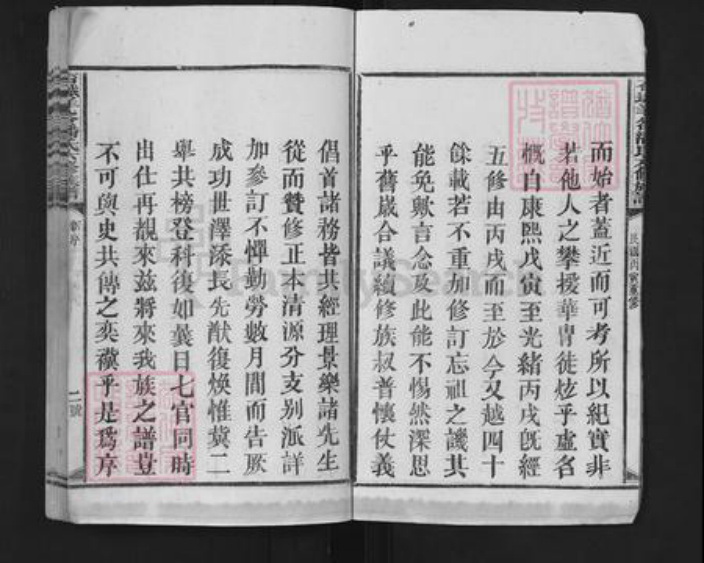 而始者蓋近而可考所以紀實非
若他人之攀援華胄徒炫乎虛名
概自康熙戊寅至光緒丙戌既經
五修由丙戌而至於今又越四十
餘載若不重加修訂忘祖之譏其
能免歟言念及此能不惕然深思
乎舊歲合議續修族叔普懷仗義
倡首諸務皆共經理景樂諸先生
從而贊修正本清源分支別派詳
加參訂不憚勤勞數月間而告厥
成功世澤添長先猷復煥惟冀二
舉共榜登科復如曩日七官同時
出仕再覩來茲將來我族之譜豈
不可與史共傳之奕禩乎是爲序
二號
FamilySearch